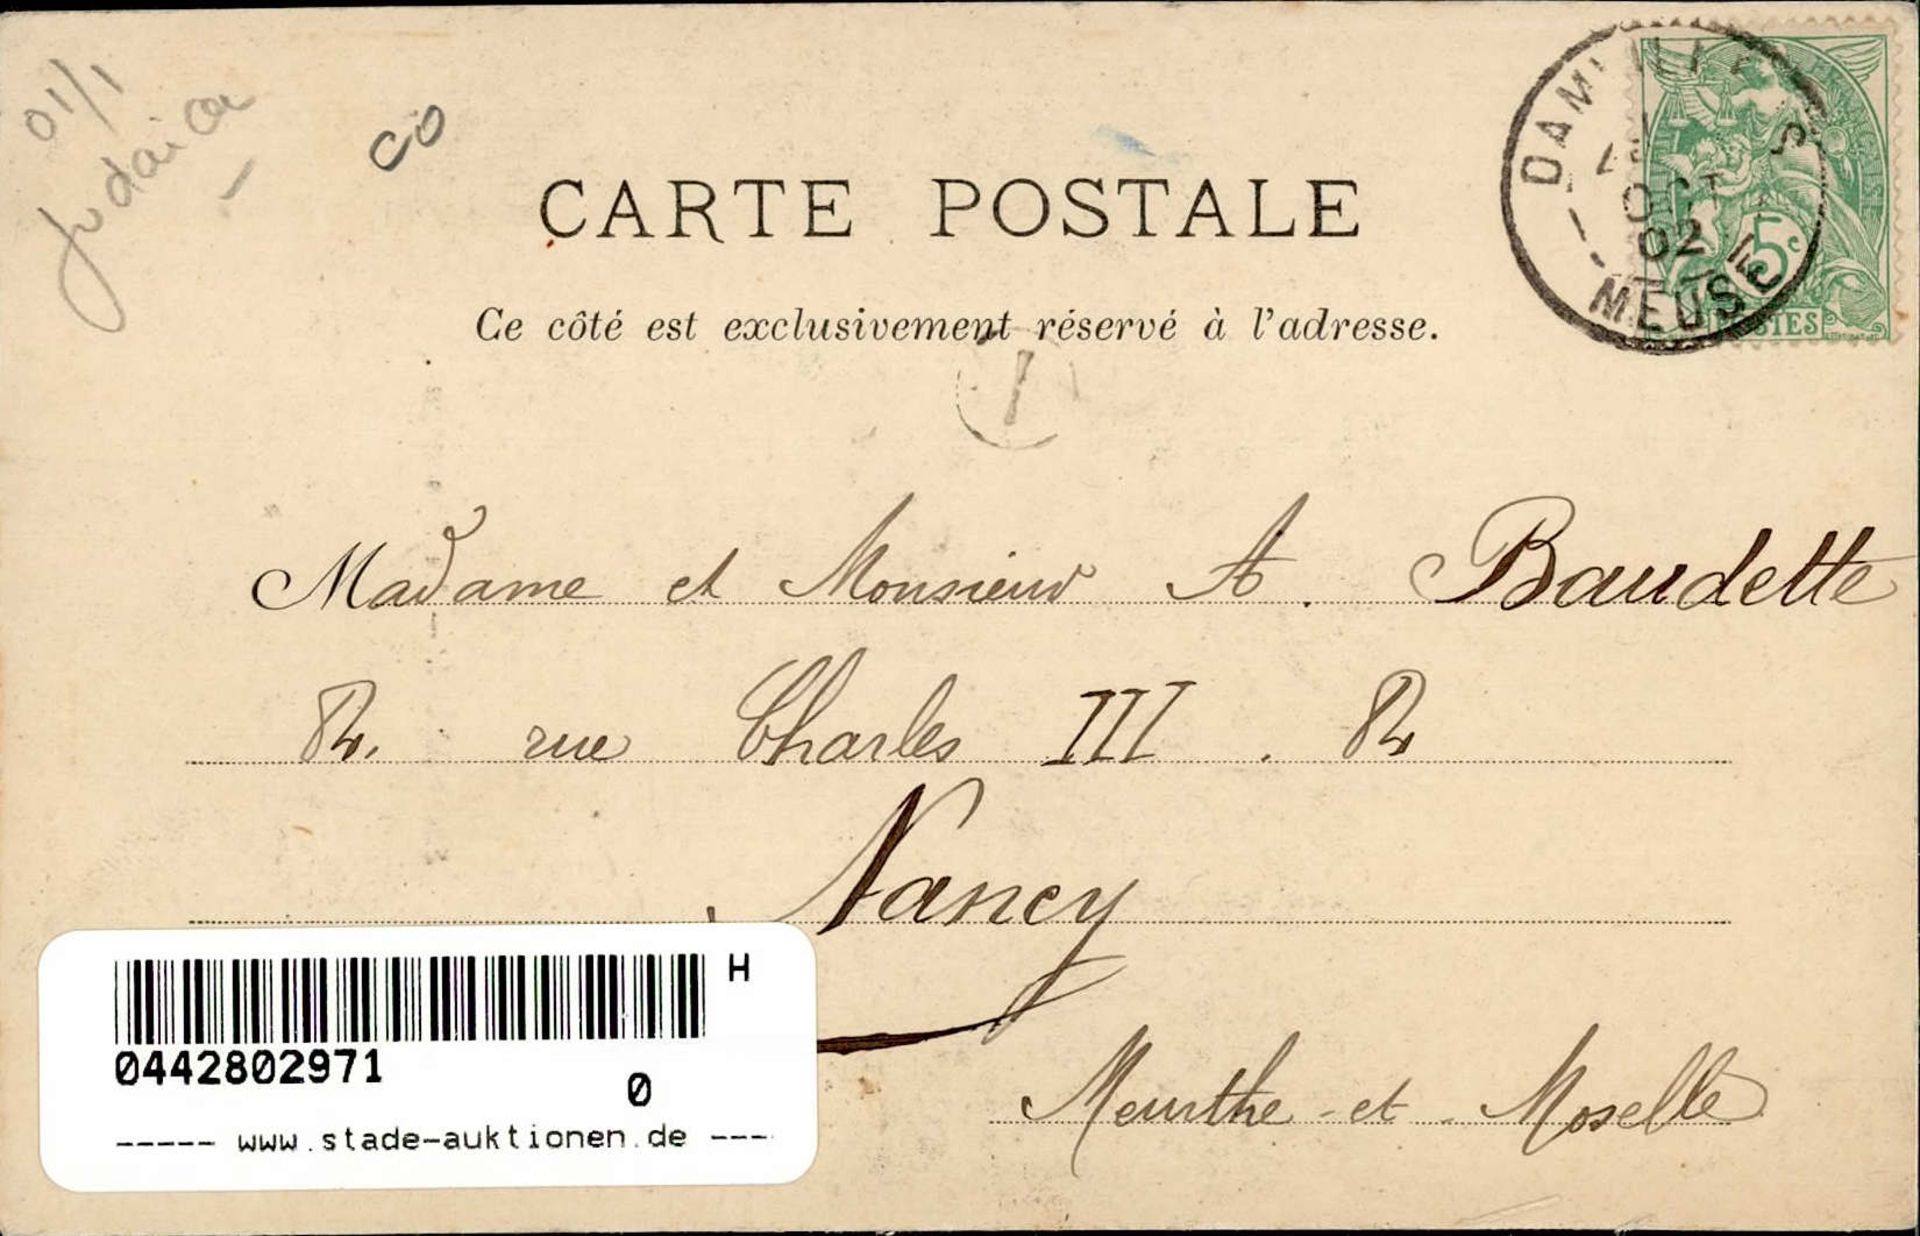 01/1
Judaica
CO
CARTE POSTALE
Ce côté est exclusivement réservé à l'adresse.
OCT
02
MEUSE
5c
POSTES
1
Madame et Monsieur A. Baudette
82, rue Charles III. 82
Nancy
Meurthe-et-Moselle
H
0442802971
0
----- www.stade-auktionen.de ----